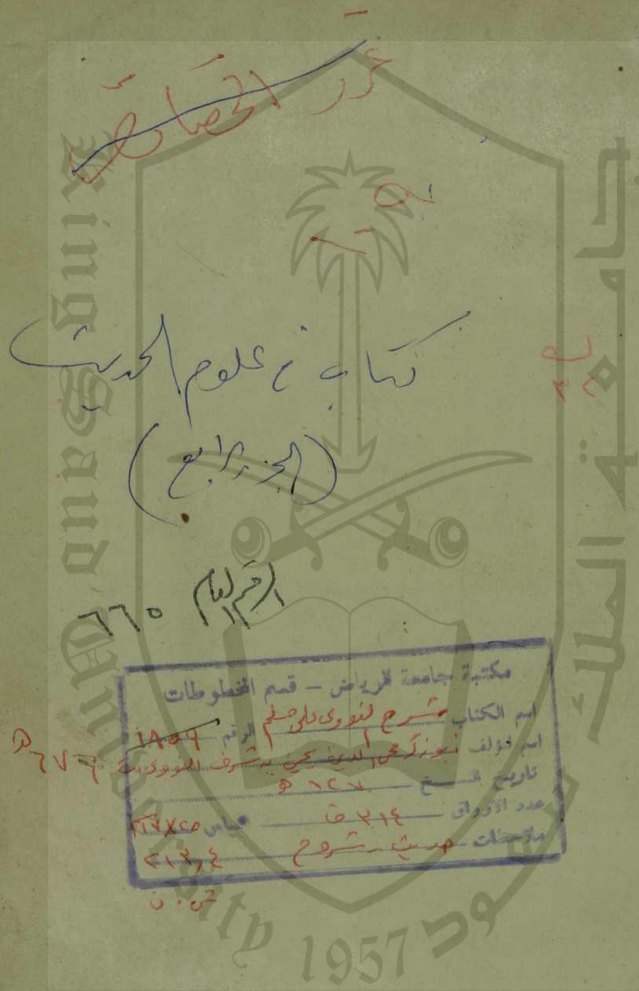 غرر الخصائص
كتاب في علوم الحديث
(الجزء الرابع)
الرقم العام ٦٦٥
مكتبة جامعة الرياض – قسم المخطوطات
اسم الكتاب شرح النووي على مسلم الرقم ١٨٥٩
اسم المؤلف أبو زكريا محي الدين يحيى بن شرف النووي ت ٦٧٦ هـ
تاريخ النسخ ٨٢٧ هـ
عدد الأوراق ٣١٤ ق قياس
ملاحظات حديث - شروح ٢١٣,٤
King Saud University
1957
جامعة الملك سعود